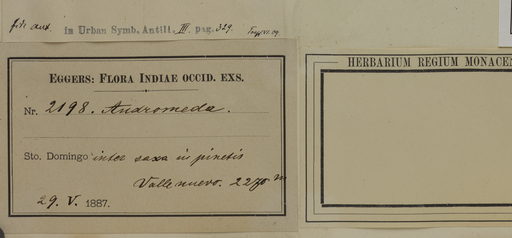 fide aut. in Urban Symb. Antill. III. pag. 329.
EGGERS: FLORA INDIAE OCCID. EXS.
Nr. 2198. Andromeda.
Sto. Domingo inter saxa in pinetis
Valle nuevo. 2270 m
29. V. 1887.
HERBARIUM REGIUM MONACEN